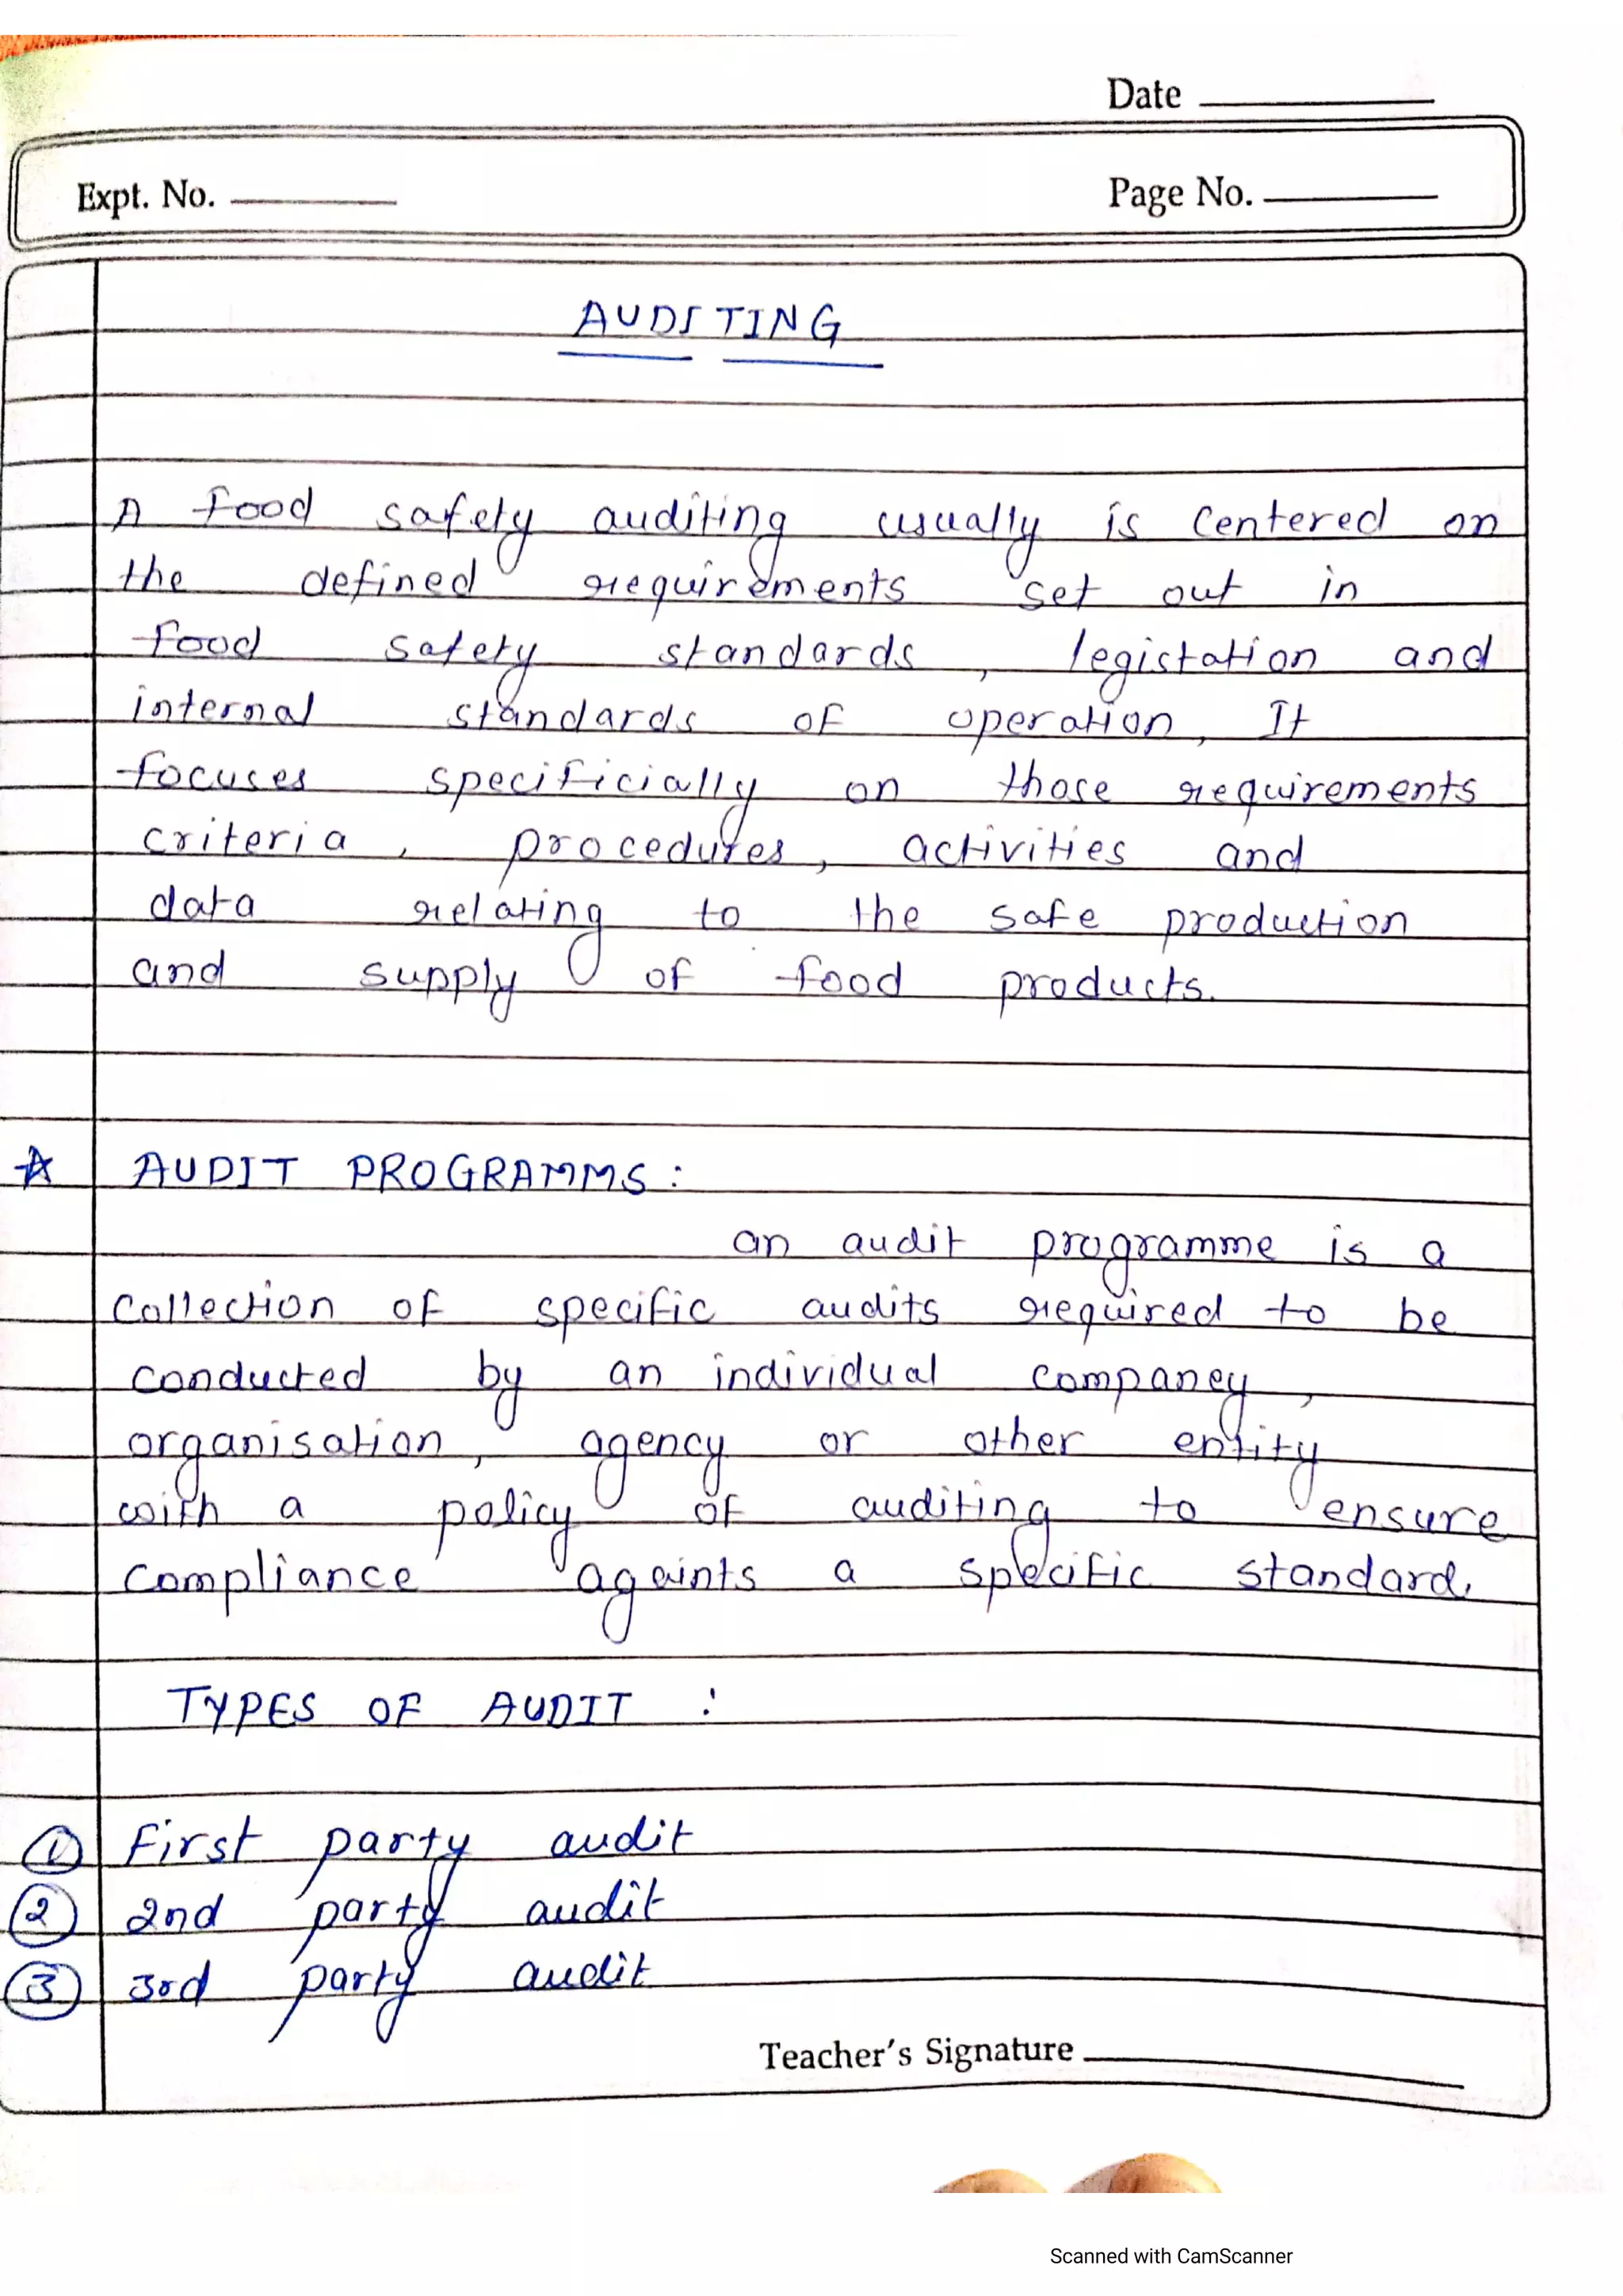 Date
Expt. No.
Page No.
AUDITING
A food safety auditing usually is centered on
the defined requirements set out in
food safety standards, legistation and
internal standards of operation, It
focuses specificially on those requirements
criteria, procedures, activities and
data relating to the safe production
and supply of food products.
☆ AUDIT PROGRAMMS :
an audit programme is a
collection of specific audits required to be
conducted by an individual companey,
organisation, agency or other entity
with a policy of auditing to ensure
compliance againts a specific standard.
TYPES OF AUDIT :
① First party audit
② 2nd party audit
③ 3rd party audit
Teacher's Signature
Scanned with CamScanner